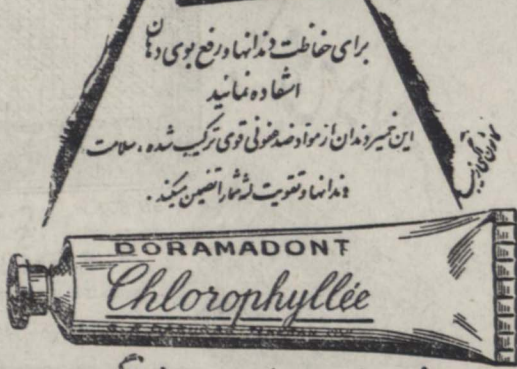 برای حفاظت دندانها و رفع بوی دهان
استفاده نمائید
این خمیر دندان از مواد ضد عفونی قوی ترکیب شده ، سلامت
دندانها و تقویت لثه شما را تضمین میکند .
DORAMADONT
Chlorophyllée